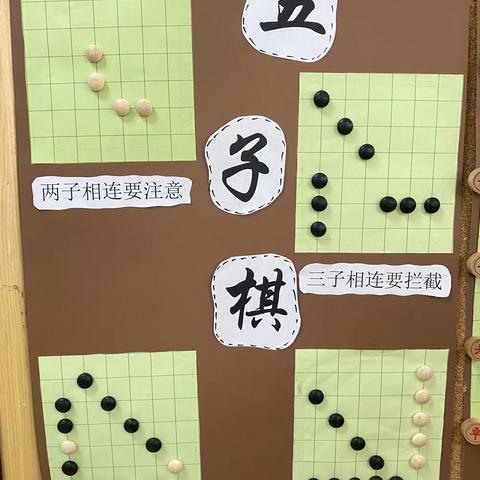 五
子
棋
两子相连要注意
三子相连要拦截